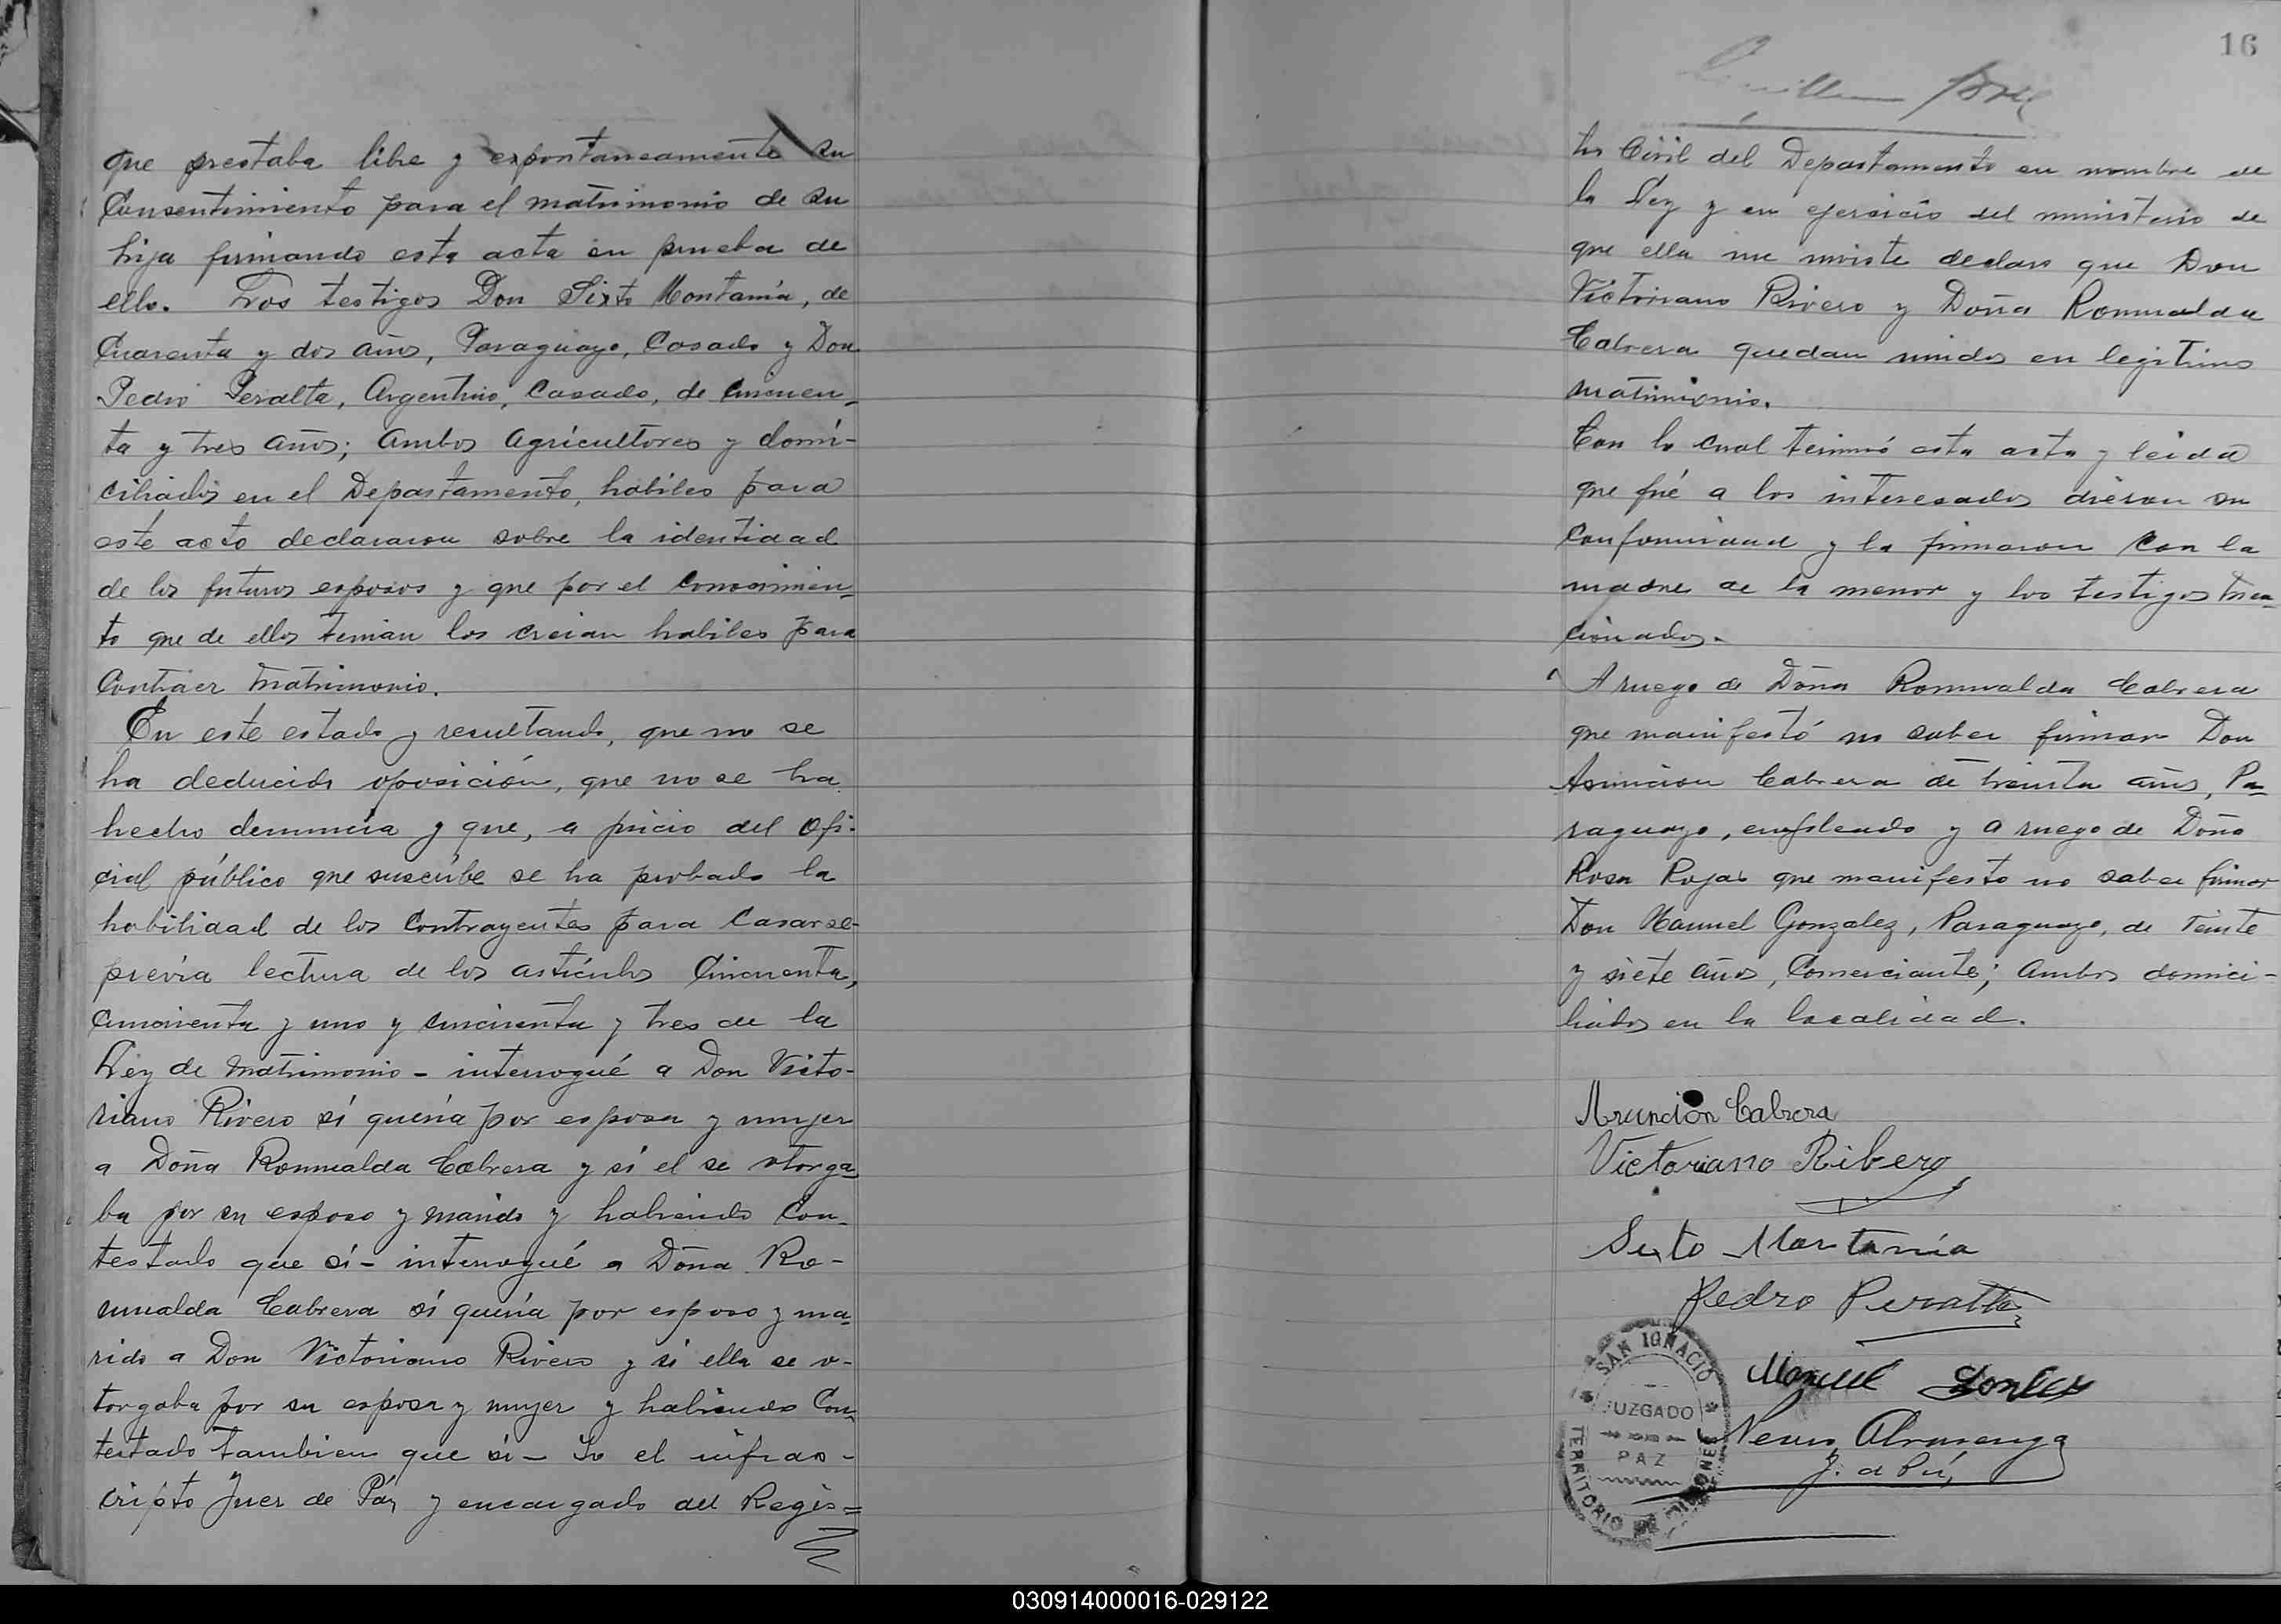 que prestaba libre y expontaneamente su
Consentimiento para el matrimonio de su
hija firmando esta acta en prueba de
ello. Los testigos Don Sixto Montania, de
Cuarenta y dos años, Paraguayo, Casado y Don
Pedro Peralta, Argentino, Casado, de Cincuen-
ta y tres años; ambos Agricultores y domi-
ciliados en el Departamento, habiles para
este acto declararon sobre la identidad
de los futuros esposos y que por el Conocimien-
to que de ellos tenian los creian habiles para
Contraer matrimonio.
En este estado y resultando, que no se
ha deducido oposición, que no se ha
hecho denuncia y que, a juicio del Ofi-
cial público que suscribe se ha probado la
habilidad de los Contrayentes para Casarse-
previa lectura de los articulos Cincuenta,
Cincuenta y uno y cincuenta y tres de la
Ley de Matrimonio - interrogué a Don Victo-
riano Rivero si quería por esposa y mujer
a Doña Romualda Cabrera y si el se otorga-
ba por su esposo y marido y habiendo Con-
testado que si - interrogué a Doña Ro-
mualda Cabrera si quería por esposo y ma-
rido a Don Victoriano Rivero y si ella se o-
torgaba por su esposa y mujer y habiendo Con-
testado tambien que si - Yo el infras-
cripto Juez de Páz y encargado del Regis=
16
tro Civil del Departamento en nombre de
la Ley y en ejersicio del ministerio de
que ella me inviste declaro que Don
Victoriano Rivero y Doña Romualda
Cabrera quedan unidos en legitimo
matrimonio.
Con lo cual terminó esta acta y leida
que fué a los interesados dieron su
Conformidad y la firmaron Con la
madre de la menor y los testigos men-
cionados.
A ruego de Doña Romualda Cabrera
que manifestó no saber firmar Don
Asuncion Cabrera de treinta años, Pa-
raguayo, empleado y a ruego de Doña
Rosa Rojas que manifesto no saber firmar
Don Manuel Gonzalez, Paraguayo, de Veinte
y siete años, Comerciante; ambos domici-
liados en la localidad.
Asunción Cabrera
Victoriano Ribero
Sixto Montania
Pedro Peralta
Manuel
J. d Páz
SAN IGNACIO
JUZGADO
PAZ
TERRITORIO DE MISIONES
030914000016-029122